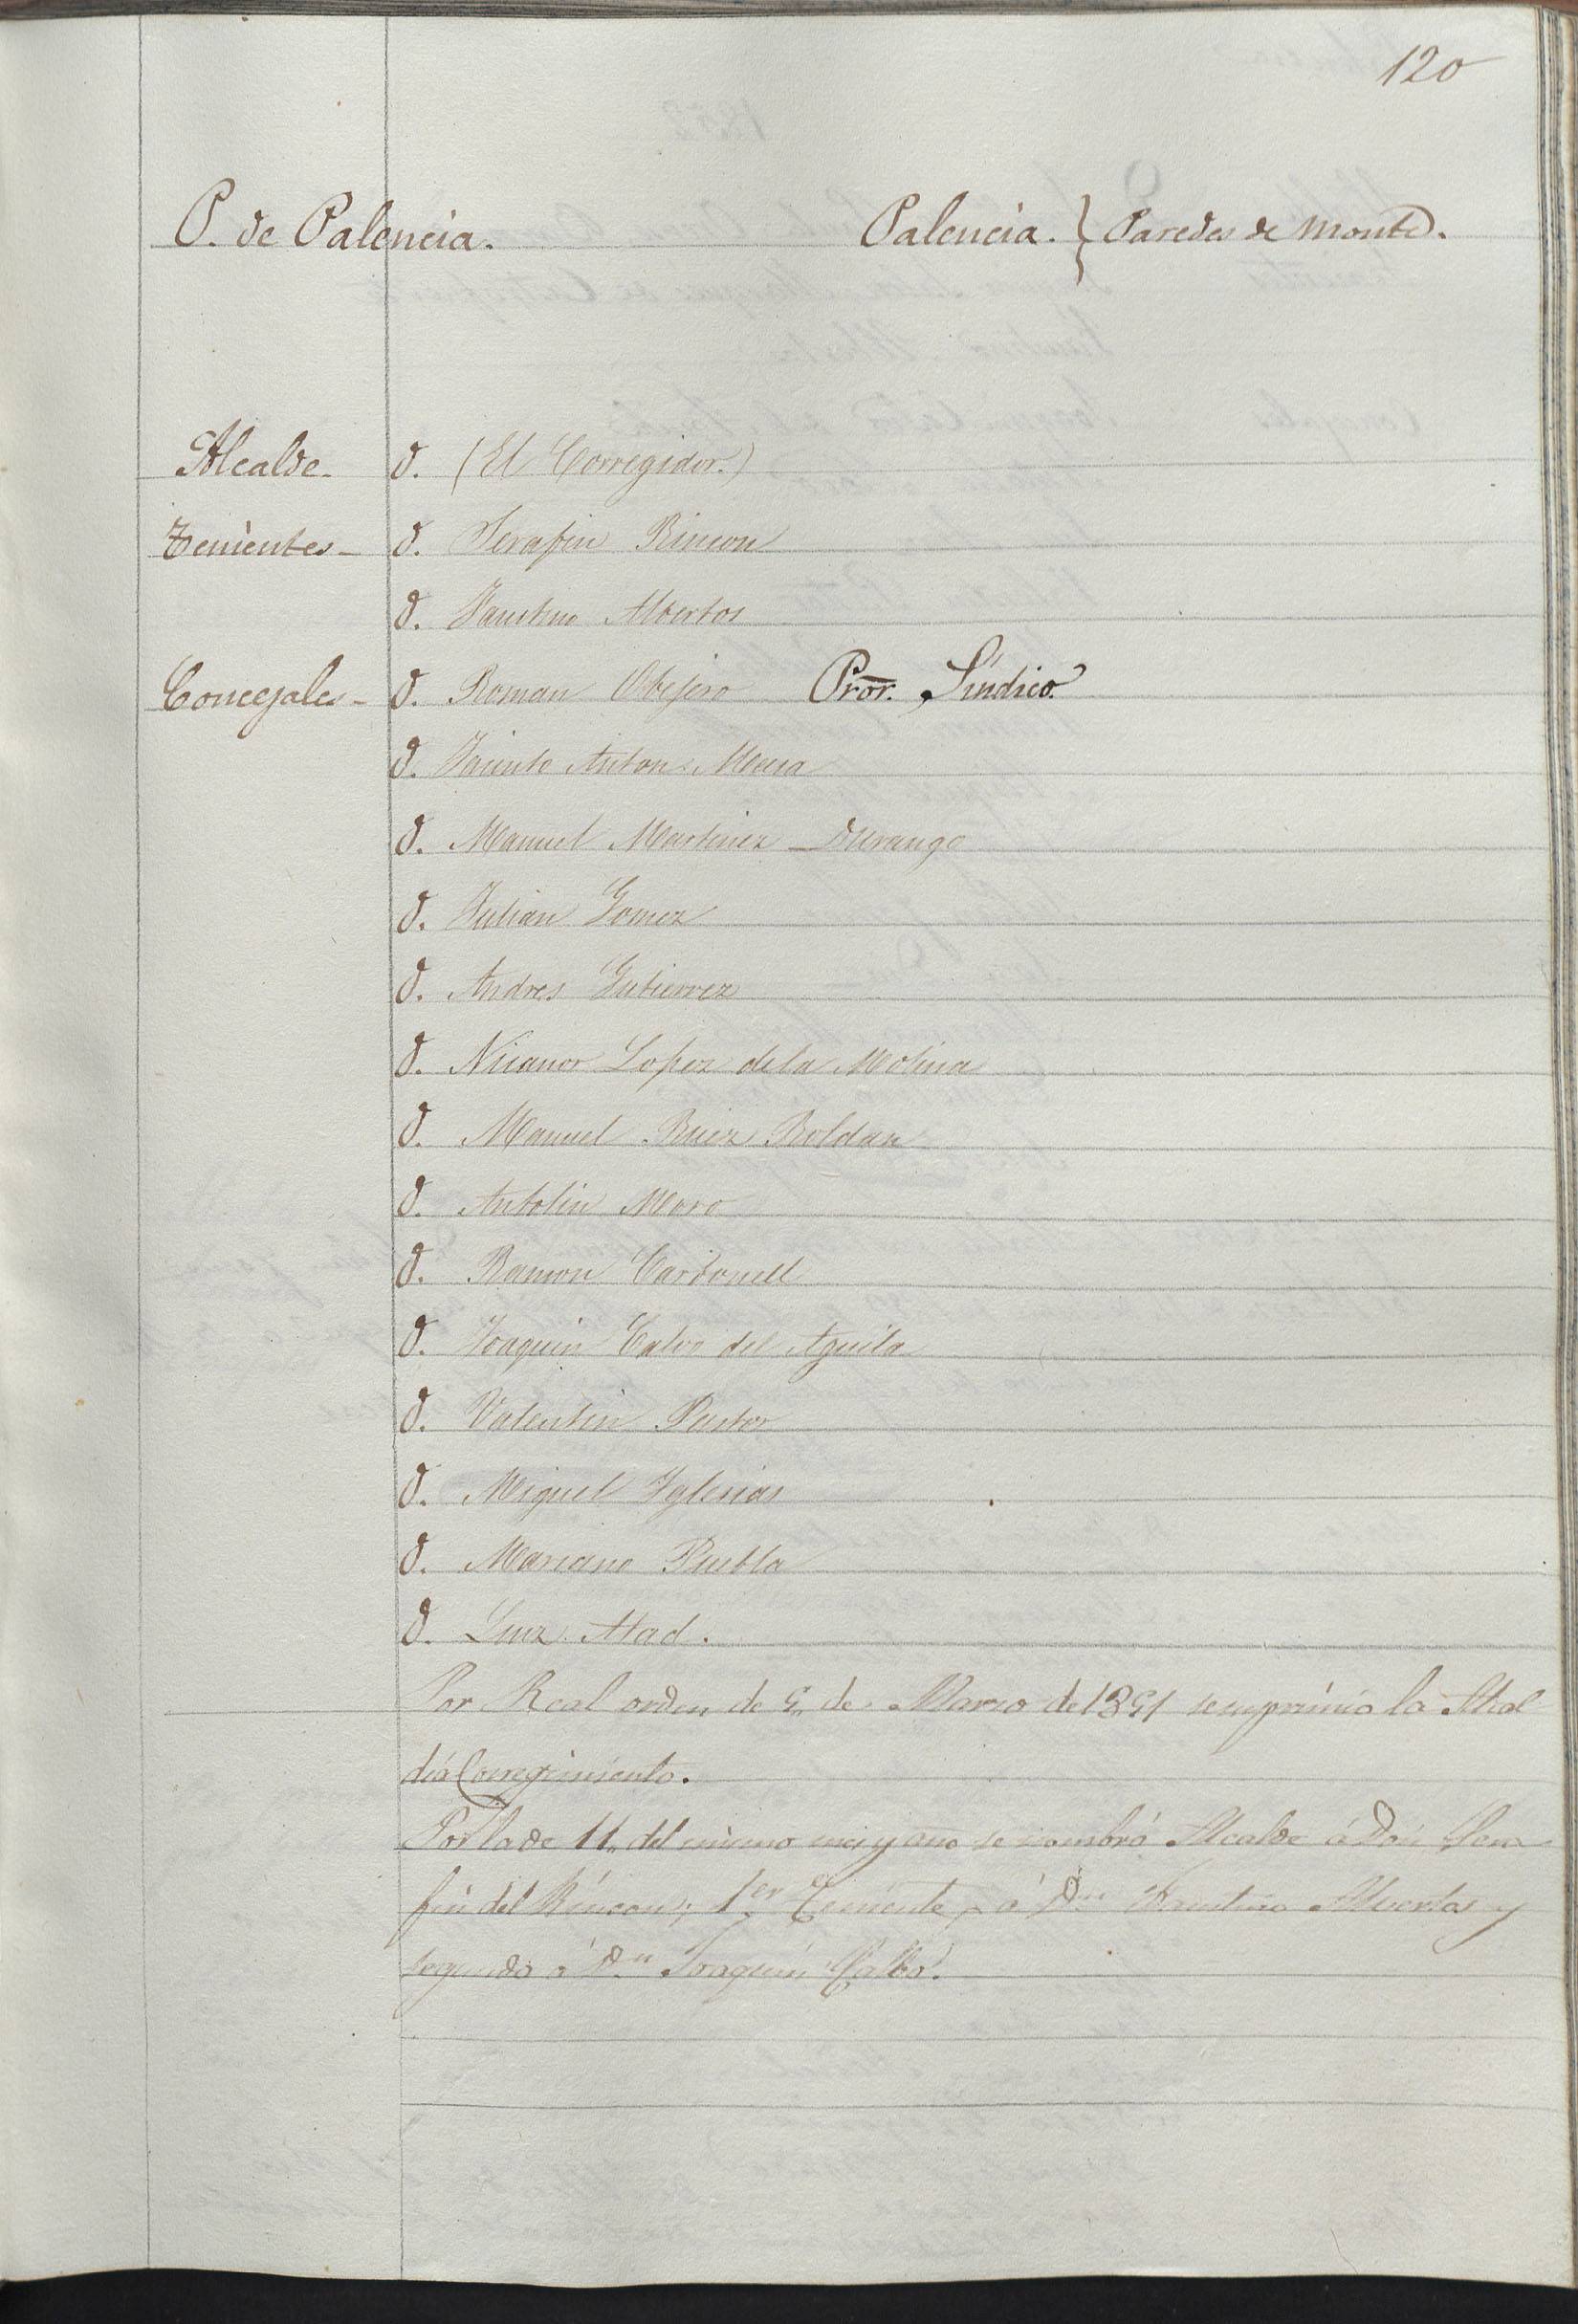 120
P. de Palencia. Palencia. } Paredes de Monte.
Alcalde - D. (El Corregidor.)
Tenientes - D. Serafin Rincon
D. Faustino Albertos
Concejales - D. Roman Obejero Pror. Síndico.
D. Jacinto Anton Masa
D. Manuel Martinez Durango
D. Julian Gomez
D. Andres Gutierrez
D. Nicanor Lopez de la Molina
D. Manuel Ruiz Roldan
D. Antolin Moro
D. Ramon Carbonell
D. Joaquin Calvo del Aguila
D. Valentin Pastor
D. Miguel Yglesias
D. Mariano Puebla
D. Luiz Abad.
Por Real orden de 5, de Marzo de 1851 se suprimio la Alcal
día Corregimiento.
Por la de 11, del mismo mes y año se nombró Alcalde á Don Sera
fin del Rincon; 1er Teniente, á Dn Faustino Albertos y
segundo á Dn Joaquin Calbo.